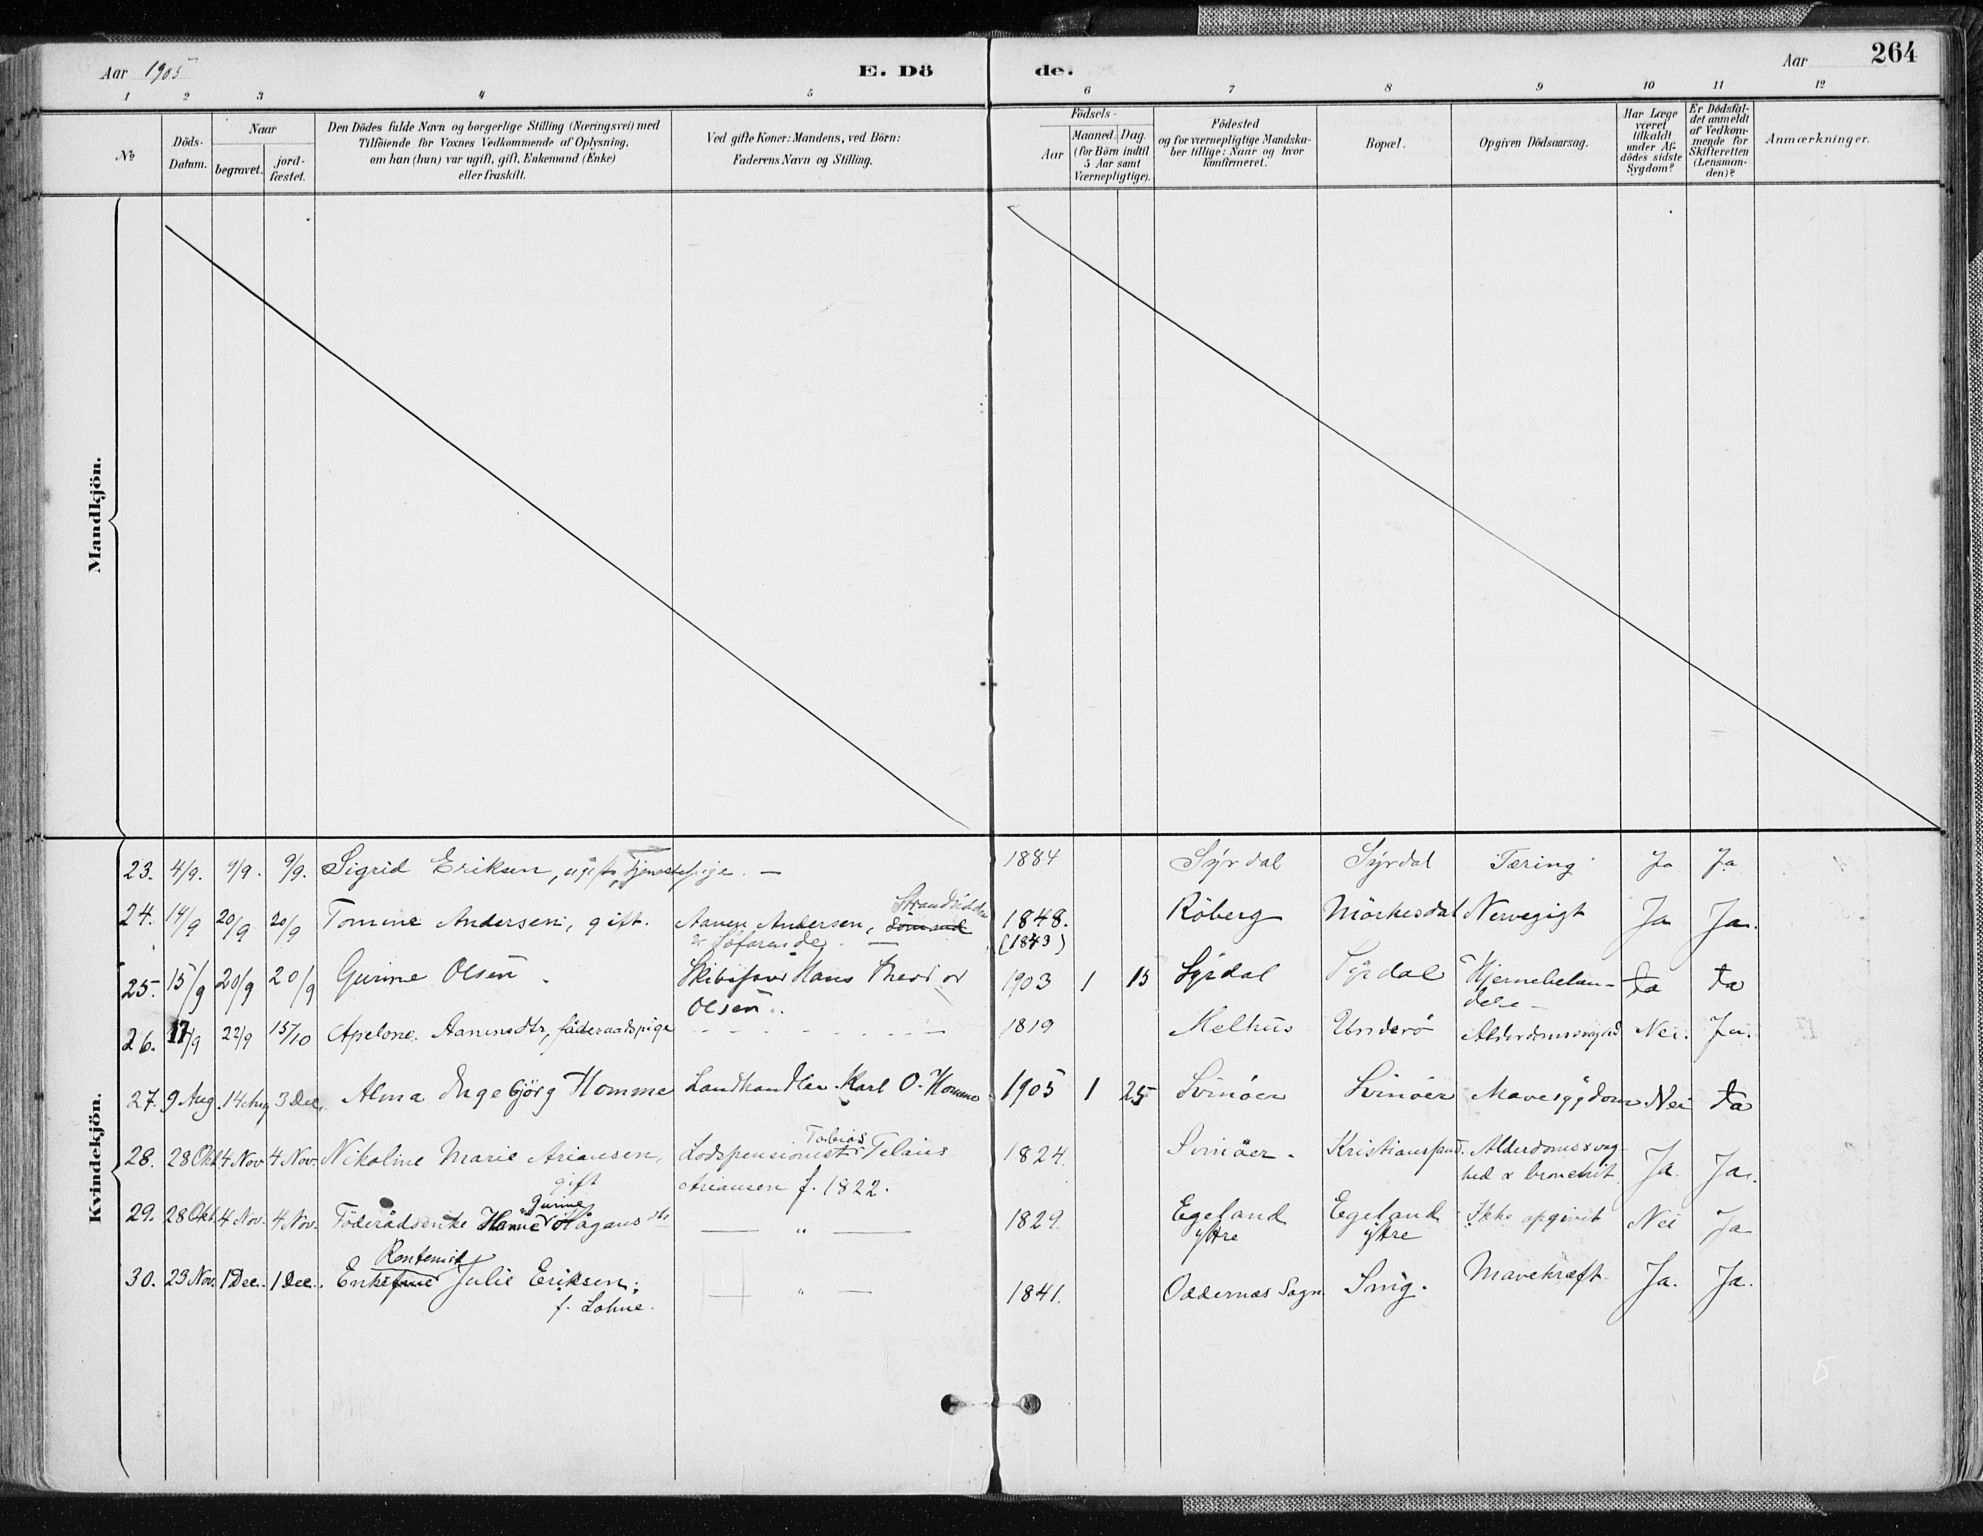 Aar 1905 E. Dö de. Aar 264
1 2 3 4 5 6 7 8 9 10 11 12
No
Döds-Datum.
Naar
begravet.
jordfæstet.
Den Dödes fulde Navn og borgerlige Stilling (Næringsvei) med
Tilföiende for Voxnes Vedkommende af Oplysning,
om han (hun) var ugift, gift, Enkemand (Enke)
eller fraskilt.
Ved gifte Koner: Mandens, ved Börn:
Faderens Navn og Stilling.
Födsels-
Aar
Maaned. Dag.
(for Börn indtil
5 Aar samt
Værnepligtige).
Födested
og for værnepligtige Mandska-
ber tillige: Naar og hvor
konfirmeret.
Bopæl.
Opgiven Dödsaarsag.
Har Læge
været
tilkaldt
under Af-
dödes sidste
Sygdom?
Er Dödsfal-
det anmeldt
af Vedkom-
mende for
Skifteretten
(Lensman-
den)?
Anmærkninger.
Mandkjön.
Kvindekjön.
23. 4/9. 9/9. 9/9. Sigrid Eriksen, ugift, Tjenestepige. — 1884 Syrdal Syrdal Tæring Ja Ja
24. 14/9 20/9 20/9 Tomine Andersen, gift. Aanen Andersen, Strandsidder 1848. Röberg Mörkesdal Nervegigt Ja Ja.
Söfarende. — (1843)
25. 15/9 20/9 20/9 Gurine Olsen. Skibsförer Hans Theodor 1903 1 15 Syrdal Syrdal Hjernebetæn- Ja Ja
Olsen. delse
26. 17/9 22/9 15/10 Apelone Aanensdtr, föderaadspige 1819 Melhus Underö Alderdomssvaghed Nei. Ja.
27. 9 Aug. 14 Aug 3 Dec. Alma Ingebjörg Homme Landhandler Karl O. Homme 1905 1 25 Svinöer Svinöer Mavesygdom Nei Ja
28. 28 Okt. 4 Nov 4 Nov. Nikoline Marie Ariansen, Lodspensionist Tobias Telaus 1824. Svinöer. Kristianssand. Alderdomssvag- Ja. Ja.
gift Ariansen f. 1822. hed & bronchit
29. 28 Okt. 4 Nov. 4 Nov. Föderådsenke Hanne Gurine Aagausdtr — " — 1829. Egeland Egeland Ikke opgivet Nei Ja
ytre ytre
Rentenist
30. 23 Nov. 1 Dec. 1 Dec. Enkefrue Julie Eriksen; — " — 1841. Oddernæs Sogn Snig. Mavekræft. Ja. Ja.
f. Lohne.